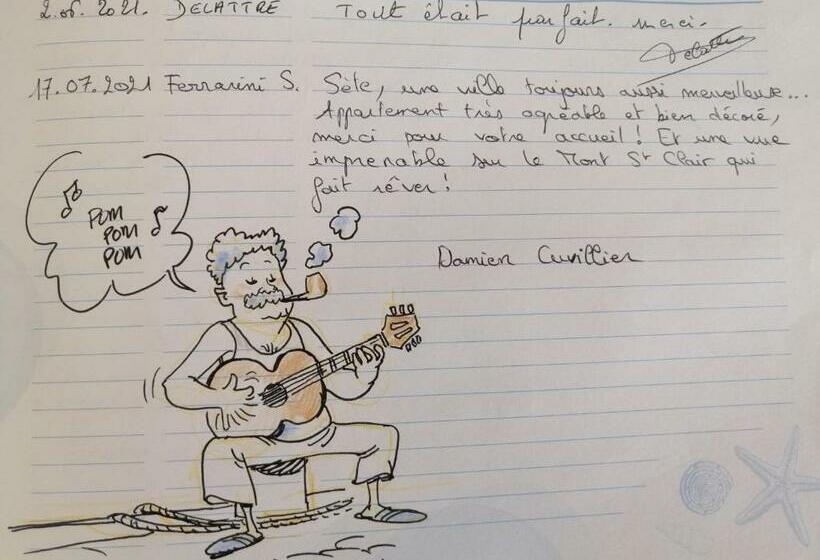 2.06.2021. DELATTRE Tout était parfait. merci.
Delattre
17.07.2021 Ferrarini S. Sète, une ville toujours aussi merveilleuse...
Appartement très agréable et bien décoré,
merci pour votre accueil! Et une vue
imprenable sur le Mont St Clair qui
fait rêver!
POM
POM
POM
Damien Cuvillier